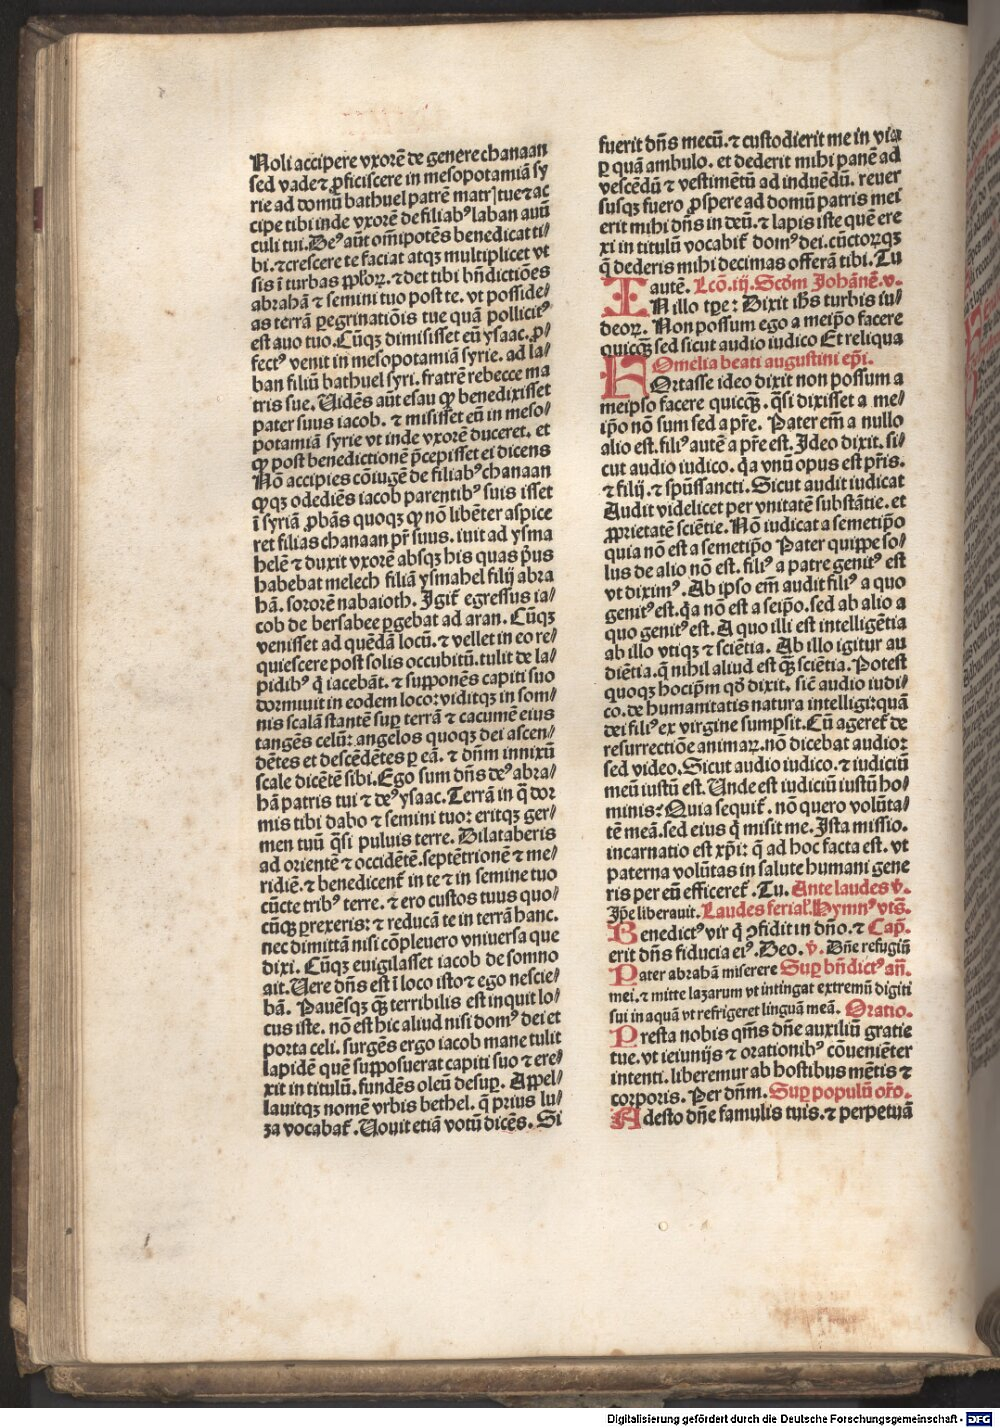 Noli accipere vxorē de genere chanaan
sed vade ⁊ ꝓficiscere in mesopotamiā sy
rie ad domū bathuel patrē matr̄ tue ⁊ ac
cipe tibi inde vxorē de filiabꝰ laban auū
culi tui. Deꝰ aūt om̄ipotēs benedicat ti⸗
bi. ⁊ crescere te faciat atqꝫ multiplicet vt
sis ī turbas ppl̓oꝝ. ⁊ det tibi bn̄dictiōes
abrahā ⁊ semini tuo post te. vt posside⸗
as terrā ꝑegrinatiōis tue quā pollicitꝰ
est auo tuo. Cūqꝫ dimisisset eū ysaac. ꝓ⸗
fectꝰ venit in mesopotamiā syrie. ad la⸗
ban filiū bathuel syri. fratrē rebecce ma
tris sue. Uidēs aūt esau ꝙ benedixisset
pater suus iacob. ⁊ misisset eū in meso⸗
potamiā syrie vt inde vxorē duceret. et
ꝙ post benedictionē p̄cepisset ei dicens
Nō accipies cōiugē de filiabꝰ chanaan
ꝙqꝫ odediēs iacob parentibꝰ suis isset
ī syriā ꝓbās quoqꝫ ꝙ nō libēter aspice
ret filias chanaan pr̄ suus. iuit ad ysma
helē ⁊ duxit vxorē absqꝫ his quas p̓us
habebat melech filiā ysmahel filij abra
hā. sororē nabaioth. Igit̄ egressus ia⸗
cob de bersabee ꝑgebat ad aran. Cūqꝫ
venisset ad quēdā locū. ⁊ vellet in eo re⸗
quiescere post solis occubitū. tulit de la⸗
pidibꝰ q̓ iacebāt. ⁊ supponēs capiti suo
dormiuit in eodem loco: viditqꝫ in som⸗
nis scalā stantē suꝑ terrā ⁊ cacumē eius
tangēs celū: angelos quoqꝫ dei ascen⸗
dētes et descēdētes ꝑ eā. ⁊ dn̄m innixū
scale dicētē sibi. Ego sum dn̄s deꝰ abra⸗
hā patris tui ⁊ deꝰ ysaac. Terrā in q̄ dor
mis tibi dabo ⁊ semini tuo: eritqꝫ ger⸗
men tuū q̄si puluis terre. Dilataberis
ad orientē ⁊ occidētē. septētrionē ⁊ me⸗
ridiē. ⁊ benedicent̄ in te ⁊ in semine tuo
cūcte tribꝰ terre. ⁊ ero custos tuus quo⸗
cūqꝫ ꝑrexeris: ⁊ reducā te in terrā hanc.
nec dimittā nisi cōpleuero vniuersa que
dixi. Cūqꝫ euigilasset iacob de somno
ait. Uere dn̄s est ī loco isto ⁊ ego nescie⸗
bā. Pauēsqꝫ q̄ꝫ terribilis est inquit lo⸗
cus iste. nō est hic aliud nisi domꝰ dei et
porta celi. surgēs ergo iacob mane tulit
lapidē quē supposuerat capiti suo ⁊ ere⸗
xit in titulū. fundēs oleū desuꝑ. Appel⸗
lauitqꝫ nomē vrbis bethel. q̄ prius lu⸗
za vocabat̄. Uouit etiā votū dicēs. Si
fuerit dn̄s mecū. ⁊ custodierit me in via
ꝑ quā ambulo. et dederit mihi panē ad
vescēdū ⁊ vestimētū ad induēdū. reuer
susqꝫ fuero ꝓspere ad domū patris mei
erit mihi dn̄s in deū. ⁊ lapis iste quē ere
xi in titulū vocabit̄ domꝰ dei. cūctoꝝqꝫ
q̄ dederis mihi decimas offerā tibi. Tu
autē. Lcō. iij. Scd̓m Johānē. v.
IN illo tꝑe: Dixit ih̄s turbis iu⸗
deoꝝ. Non possum ego a meip̄o facere
quicq̄ꝫ sed sicut audio iudico Et reliqua
Omelia beati augustini ep̄i.
FOrtasse ideo dixit non possum a
meipso facere quicq̄ꝫ. q̄si dixisset a me⸗
ip̄o nō sum sed a pr̄e. Pater em̄ a nullo
alio est. filiꝰ autē a pr̄e est. Ideo dixit. si⸗
cut audio iudico. q̓a vnū opus est pr̄is.
⁊ filij. ⁊ spūssancti. Sicut audit iudicat
Audit videlicet per vnitatē substātie. et
ꝓprietatē sciētie. Nō iudicat a semetip̄o
quia nō est a semetip̄o Pater quippe so⸗
lus de alio nō est. filiꝰ a patre genitꝰ est
vt diximꝰ. Ab ipso em̄ audit filiꝰ a quo
genitꝰ est. q̓a nō est a seip̄o. sed ab alio a
quo genitꝰ est. A quo illi est intelligētia
ab illo vtiqꝫ ⁊ sciētia. Ab illo igitur au
diētia. q̄ nihil aliud est q̄ꝫ sciētia. Potest
quoqꝫ hocip̄m qd̓ dixit. sic̄ audio iudi⸗
co. de humanitatis natura intelligi: quā
dei filiꝰ ex virgine sumpsit. Cū ageret̄ de
resurrectiōe animaꝝ. nō dicebat audio:
sed video. Sicut audio iudico. ⁊ iudiciū
meū iustū est. Unde est iudiciū iustū ho⸗
minis: Quia sequit̄. nō quero volūta⸗
tē meā. sed eius q̓ misit me. Ista missio.
incarnatio est xp̄i: q̄ ad hoc facta est. vt
paterna volūtas in salute humani gene
ris per eū efficeret̄. Tu. Ante laudes v̓.
Ip̄e liberauit. Laudes ferial̓. Hymnꝰ vts̄.
Benedictꝰ vir q̓ ꝯfidit in dn̄o. ⁊ Cap̄.
erit dn̄s fiducia eiꝰ. Deo. v̓. Dn̄e refugiū
Pater abrahā miserere Suꝑ bn̄dictꝰ an̄.
mei. ⁊ mitte lazarum vt intingat extremū digiti
sui in aquā vt refrigeret linguā meā. Oratio.
Presta nobis qm̄s dn̄e auxiliū gratie
tue. vt ieiunijs ⁊ orationibꝰ cōueniēter
intenti. liberemur ab hostibus mētis ⁊
corporis. Per dn̄m. Suꝑ populū or̄o.
Adesto dn̄e famulis tuis. ⁊ perpetuā
Digitalisierung gefördert durch die Deutsche Forschungsgemeinschaft - DFG